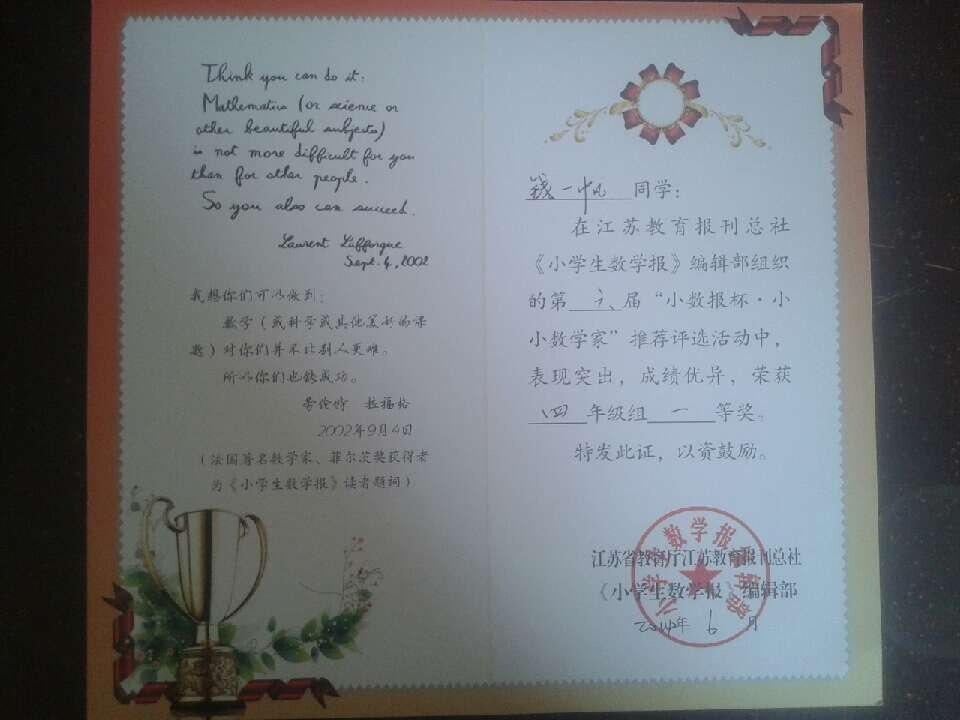 Think you can do it:
Mathematics (or science or
other beautiful subjects)
is not more difficult for you
than for other people.
So you also can succeed.
Laurent Lafforgue
Sept. 4, 2002
我想你们可以做到：
数学（或科学或其他美好的课
题）对你们并不比别人更难。
所以你们也能成功。
劳伦特 拉福格
2002年9月4日
（法国著名数学家、菲尔茨奖获得者
为《小学生数学报》读者题词）
钱一帆 同学：
在江苏教育报刊总社
《小学生数学报》编辑部组织
的第 六 届“小数报杯·小
小数学家”推荐评选活动中，
表现突出，成绩优异，荣获
四 年级组 一 等奖。
特发此证，以资鼓励。
江苏省教育厅江苏教育报刊总社
《小学生数学报》编辑部
年 6 月
小学生数学报编辑部